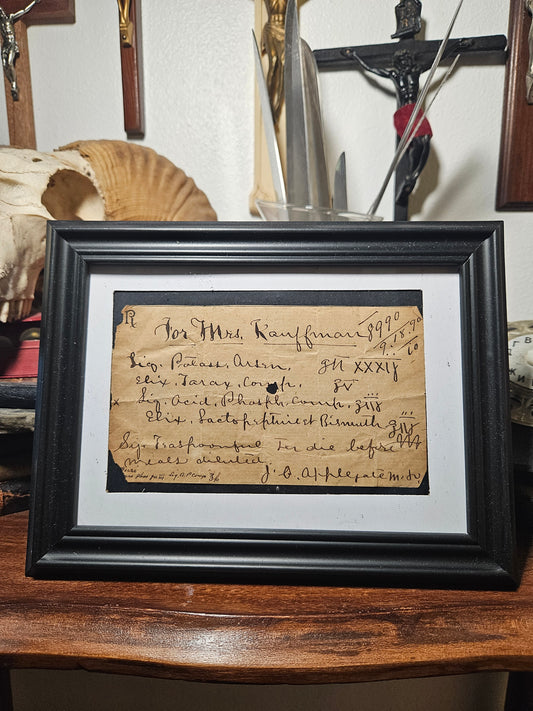 ℞
For Mrs. Kauffman 8990
9.18.90
Liq. Potass. Arsen. gtt XXXIJ
Elix. Tarax. Comp. ʒv
x Liq. Acid. Phosph. Comp. ʒiij
Elix. Lactopeptine et Bismuth ʒiv
Sig Teaspoonful Ter die before
meals diluted
J. O. Applegate M.D.